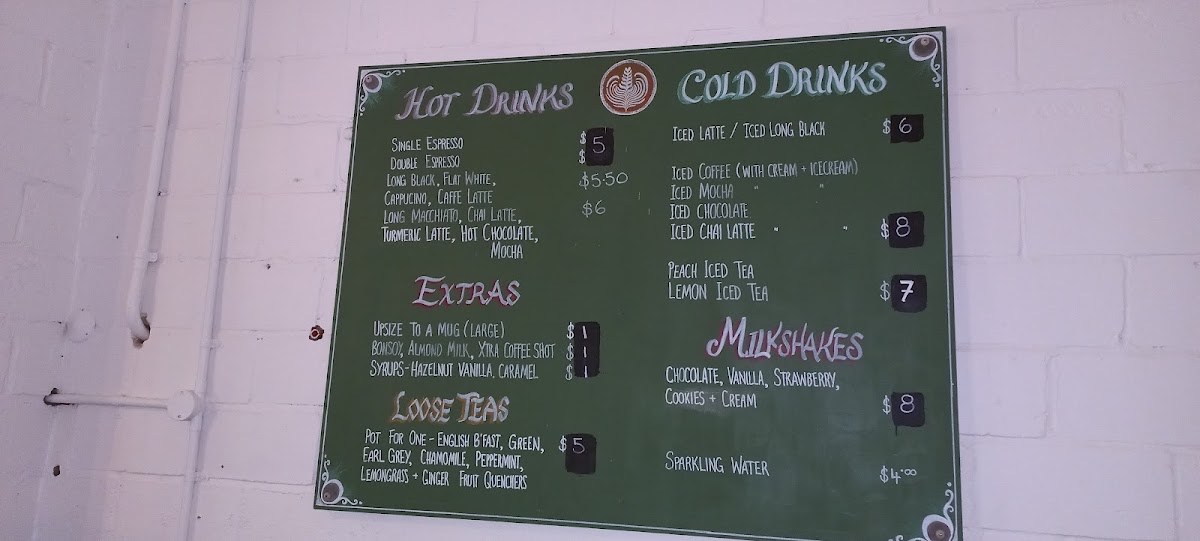 HOT DRINKS
SINGLE ESPRESSO $ 5
DOUBLE ESPRESSO $
LONG BLACK, FLAT WHITE, $5.50
CAPPUCINO, CAFFE LATTE
LONG MACCHIATO, CHAI LATTE, $6
TURMERIC LATTE, HOT CHOCOLATE,
MOCHA
EXTRAS
UPSIZE TO A MUG (LARGE) $1
BONSOY, ALMOND MILK, XTRA COFFEE SHOT $1
SYRUPS - HAZELNUT VANILLA, CARAMEL $1
LOOSE TEAS
POT FOR ONE - ENGLISH B'FAST, GREEN, $5
EARL GREY, CHAMOMILE, PEPPERMINT,
LEMONGRASS + GINGER FRUIT QUENCHERS
COLD DRINKS
ICED LATTE / ICED LONG BLACK $6
ICED COFFEE (WITH CREAM + ICECREAM)
ICED MOCHA " "
ICED CHOCOLATE
ICED CHAI LATTE " " $8
PEACH ICED TEA
LEMON ICED TEA $7
MILKSHAKES
CHOCOLATE, VANILLA, STRAWBERRY,
COOKIES + CREAM $8
SPARKLING WATER $4.00